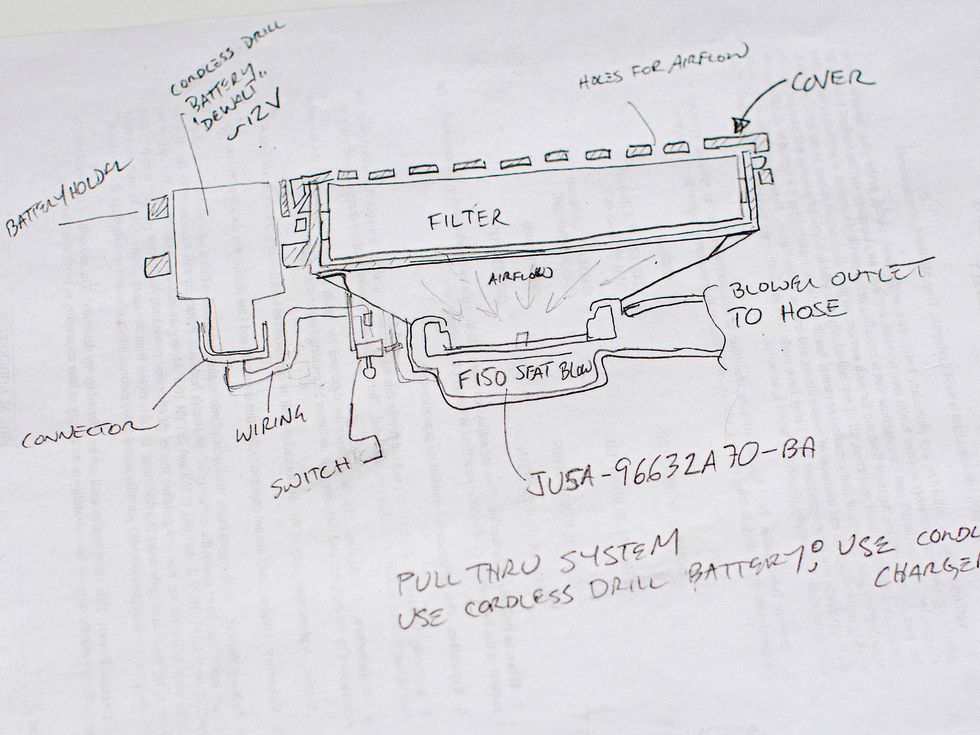 CORDLESS DRILL
BATTERY
"DEWALT"
~12V
HOLES FOR AIRFLOW
COVER
BATTERY HOLDER
FILTER
AIRFLOW
BLOWER OUTLET
TO HOSE
F150 SEAT BLOW
CONNECTOR
WIRING
SWITCH
JU5A-96632A70-BA
PULL THRU SYSTEM
USE CORDLESS DRILL BATTERY; USE CORDL
CHARGER